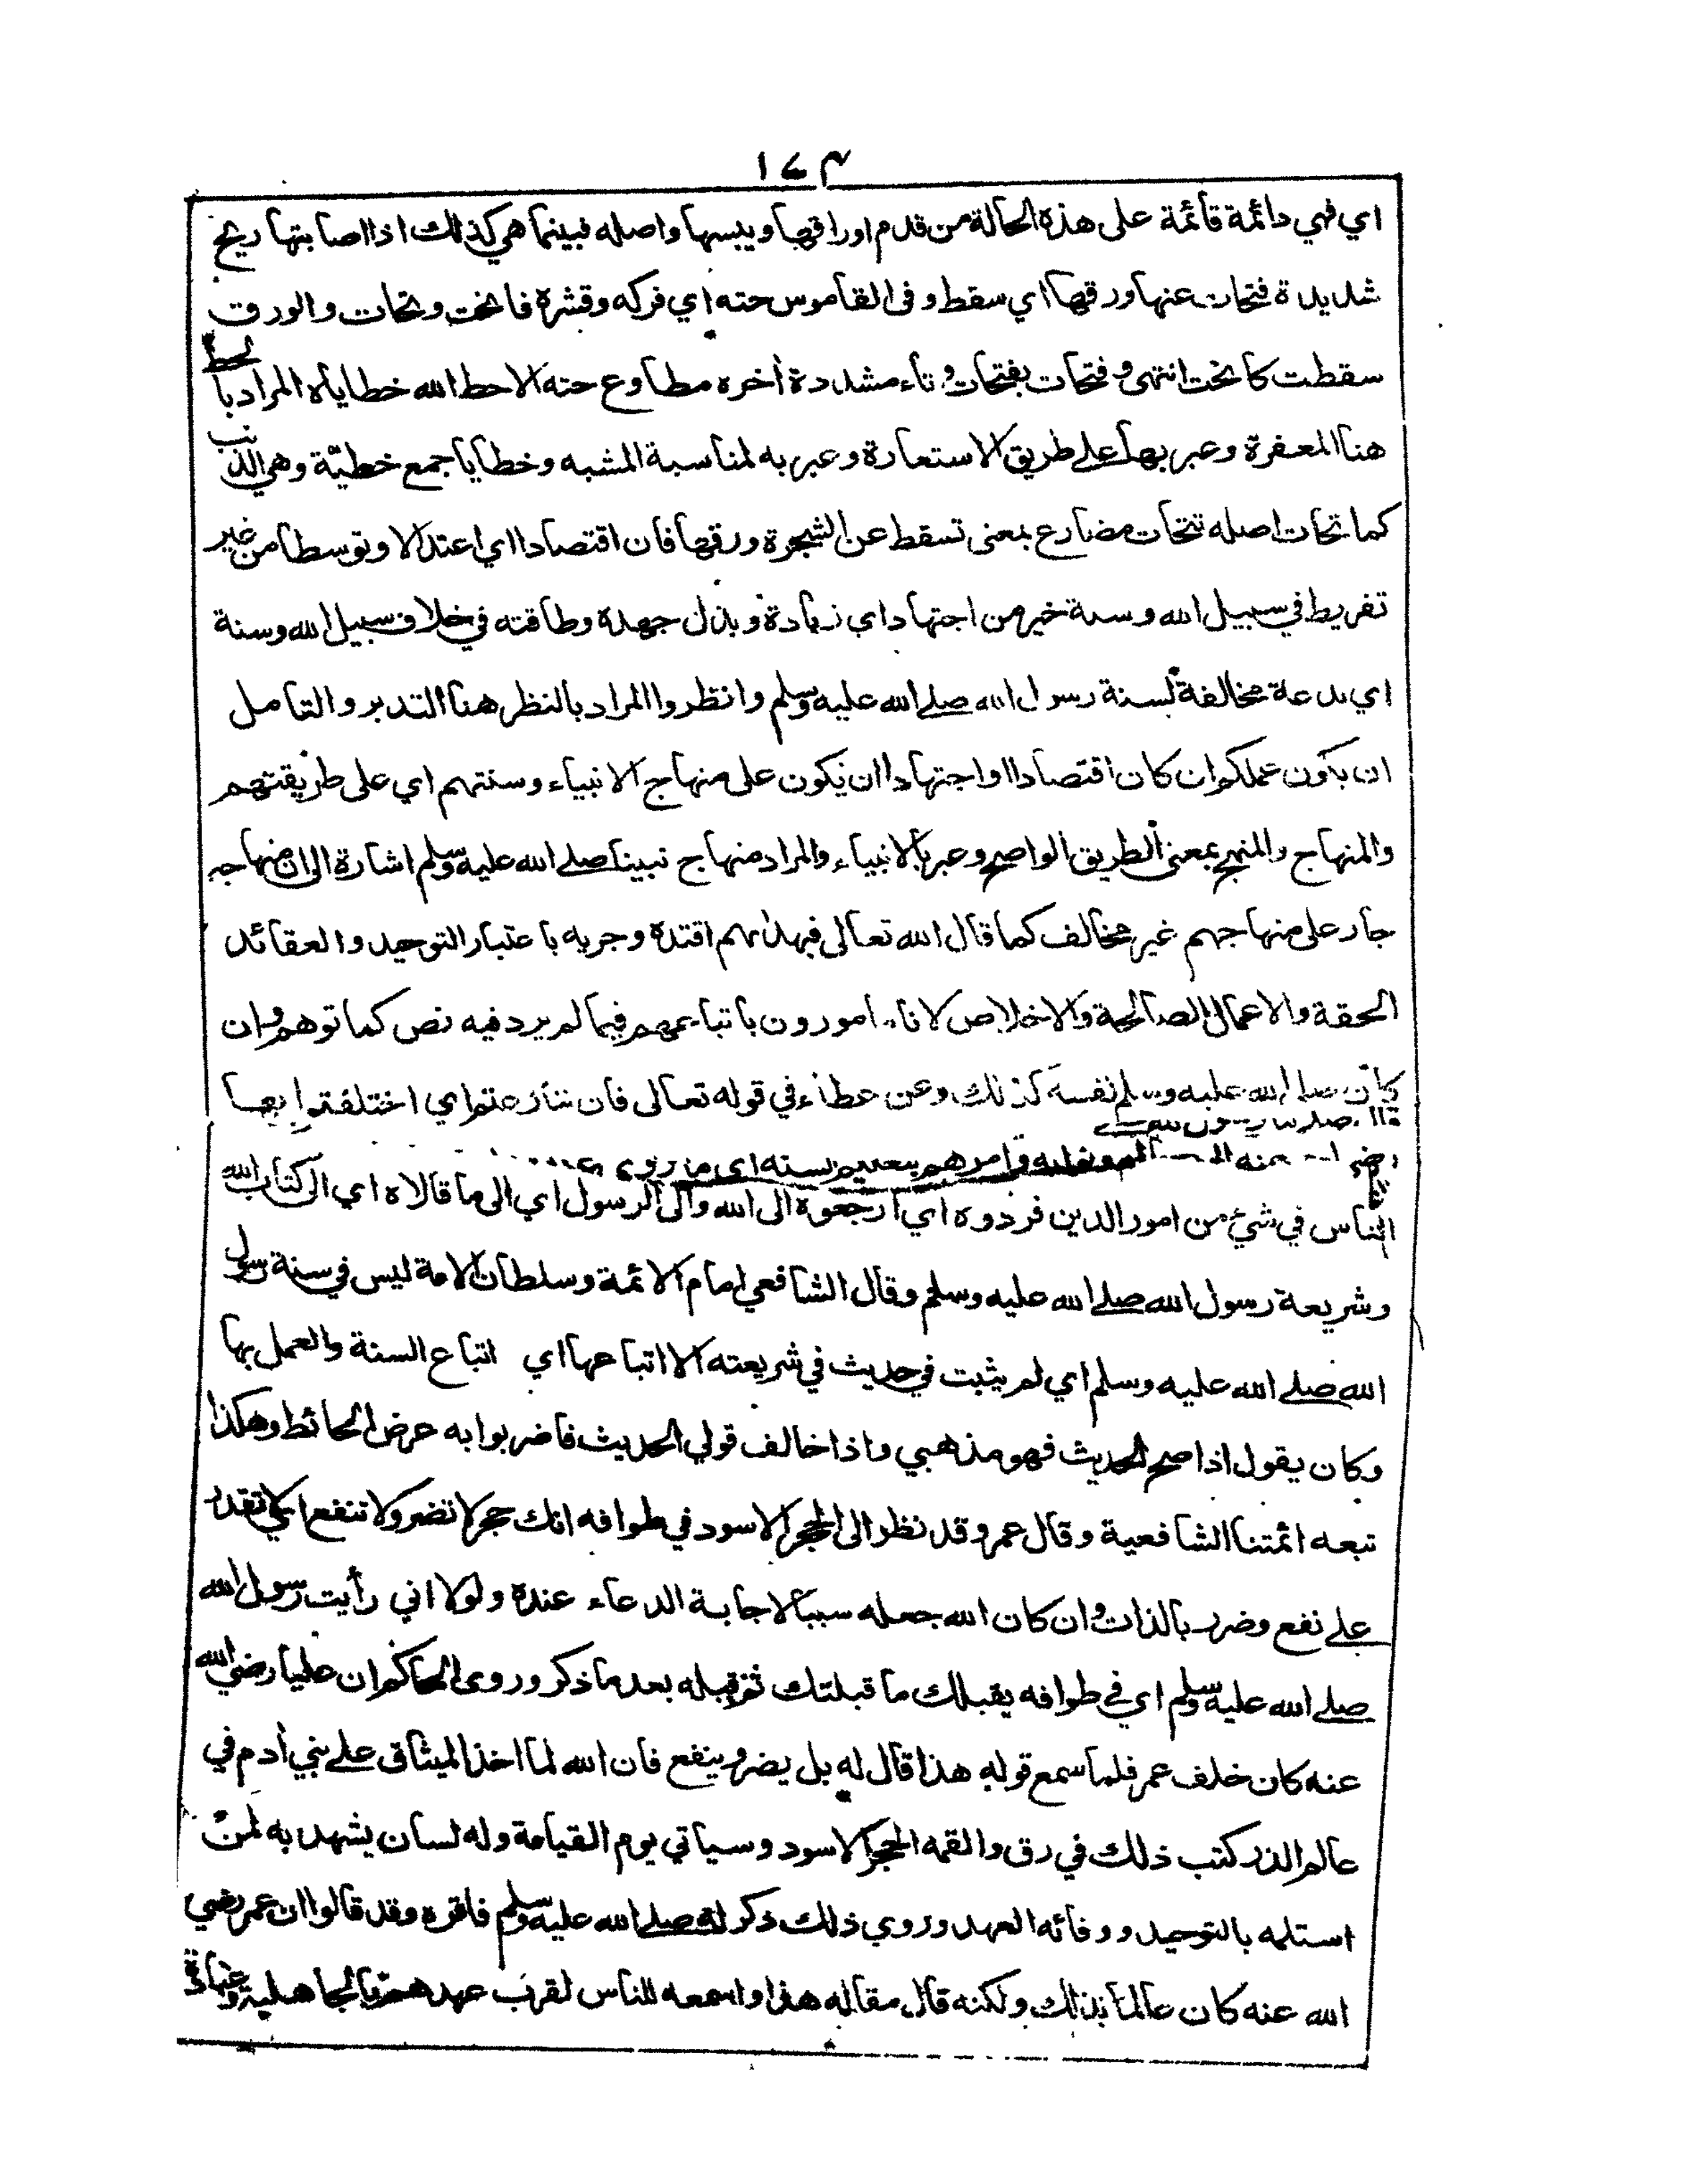 ١٤٣
اي فهي دائمة قائمة على هذه الحالة من قدم اوراقها ويبسها واصله فبينما هي كذلك اذا اصابتها ريح
شديدة فتحات عنها ورقها اي سقط وفي القاموس حته اي فركه وقشره فانحت وتحات والورق
سقطت كانحت انتهى وفتحات بفتحات وتاء مشددة أخره مطاوع حته الا حط الله خطاياه المراد بالحط
هنا المغفرة وعبر بها على طريق الاستعارة وعبر به لمناسبة المشبه وخطايا جمع خطيّة وهي الذنب
كما تحات اصله تتحات مضارع بمعنى تسقط عن الشجرة ورقها فان اقتصادا اي اعتدالا وتوسطا من غير
تفريط في سبيل الله وسنة خير من اجتهاد اي زيادة وبذل جهده وطاقته في خلاف سبيل الله وسنة
اي بدعة مخالفة لسنة رسول الله صلى الله عليه وسلم وانظروا المراد بالنظر هنا التدبر والتامل
ان يكون عملكم ان كان اقتصادا او اجتهادا ان يكون على منهاج الانبياء وسنتهم اي على طريقتهم
والمنهاج والمنهج بمعنى الطريق الواضح وعبر بالانبياء والمراد منهاج نبينا صلى الله عليه وسلم اشارة الى ان منهاجه
جار على منهاجهم غير مخالف كما قال الله تعالى فبهداهم اقتده وجريه باعتبار التوحيد والعقائد
الحقة والاعمال الصالحة والاخلاص لا نا مامورون باتباعهم فيما لم يرد فيه نص كما توهم وان
كان صلى الله عليه وسلم نفسه كذلك وعن عطاء في قوله تعالى فان تنازعتم اي اختلفتم ايها
الناس في شيء من امور الدين فردوه اي ارجعوه الى الله والى الرسول اي الى ما قالاه اي الى كتاب الله
وشريعة رسول الله صلى الله عليه وسلم وقال الشافعي امام الائمة وسلطان الامة ليس في سنة رسول
الله صلى الله عليه وسلم اي لم يثبت في حديث في شريعته الا اتباعها اي اتباع السنة والعمل بها
وكان يقول اذا صح الحديث فهو مذهبي واذا خالف قولي الحديث فاضربوا به عرض الحائط وهكذا
تبعه ائمتنا الشافعية وقال عمر وقد نظر الى الحجر الاسود في طوافه انك حجر لا تضر ولا تنفع اي لا تقدر
على نفع وضرر بالذات وان كان الله جعله سببا لاجابة الدعاء عنده ولولا اني رأيت رسول الله
صلى الله عليه وسلم اي في طوافه يقبلك ما قبلتك ثم قبله بعد ما ذكر وروى الحاكم ان عليا رضي الله
عنه كان خلف عمر فلما سمع قوله هذا قال له بل يضر وينفع فان الله لما اخذ الميثاق على بني أدم في
عالم الذر كتب ذلك في رق والقمه الحجر الاسود وسياتي يوم القيامة وله لسان يشهد به لمن
استلمه بالتوحيد ووفائه العهد وروي ذلك ذكر له صلى الله عليه وسلم فاقره وقد قالوا ان عمر رضي
الله عنه كان عالما بذلك ولكنه قال مقاله هذا واسمعه للناس لقرب عهدهم بالجاهلية وعبادة